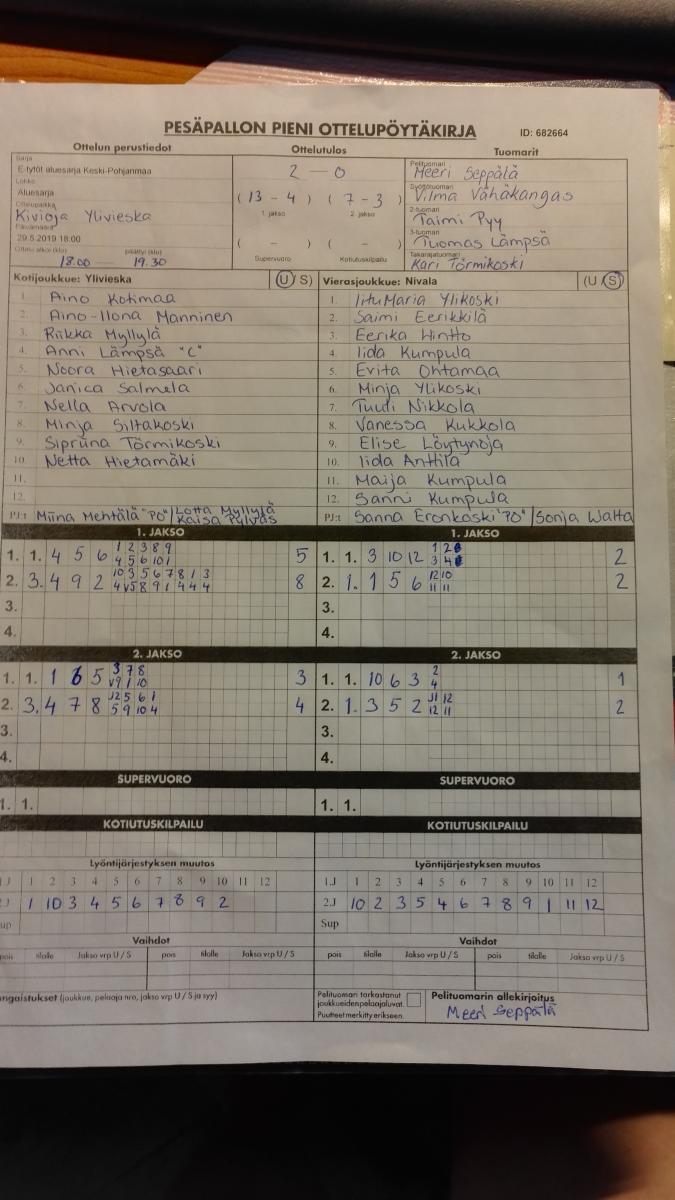 PESÄPALLON PIENI OTTELUPÖYTÄKIRJA
ID: 682664
Ottelun perustiedot
Ottelutulos
Tuomarit
Sarja
E-tytöt aluesarja Keski-Pohjanmaa
Lohko
Aluesarja
Ottelupaikka
Kivioja Ylivieska
Päivämäärä
29.5.2019 18:00
18.00 — 19.30
2 — 0
( 13 - 4 ) ( 7 - 3 )
1. jakso 2. jakso
( - ) ( - )
Supervuoro Kotiutuskilpailu
Pelituomari
Meeri Seppälä
Syöttötuomari
Vilma Vähäkangas
2-tuomari
Taimi Pyy
3-tuomari
Tuomas Lämpsä
Takarajatuomari
Kari Törmikoski
Kotijoukkue: Ylivieska (U S)
1. Aino Kotimaa
2. Aino-Ilona Manninen
3. Riikka Myllylä
4. Anni Lämpsä "C"
5. Noora Hietasaari
6. Janica Salmela
7. Nella Arvola
8. Minja Siltakoski
9. Sipriina Törmikoski
10. Netta Hietamäki
11.
12.
PJ:t Miina Mehtälä "PO" / Lotta Myllylä
Kaisa Pylväs
Vierasjoukkue: Nivala (U S)
1. IituMaria Ylikoski
2. Saimi Eerikkilä
3. Eerika Hintto
4. Iida Kumpula
5. Evita Ohtamaa
6. Minja Ylikoski
7. Tuuli Nikkola
8. Vanessa Kukkola
9. Elise Löytynoja
10. Iida Anttila
11. Maija Kumpula
12. Sanni Kumpula
PJ:t Sanna Eronkoski "PO" / Sonja Walta
1. JAKSO
1. 1. 4 5 6 1 2 3 8 9 5
4 5 6 10 1
2. 3. 4 9 2 10 3 5 6 7 8 1 3 8
4 v5 8 9 1 4 4 4
3.
4.
1. JAKSO
1. 1. 3 10 12 1 2 2
3 4
2. 1. 1 5 6 12 10 2
11 11
3.
4.
2. JAKSO
1. 1. 1 6 5 3 7 8 3
v9 1 10
2. 3. 4 7 8 2 5 6 1 4
5 9 10 4
3.
4.
2. JAKSO
1. 1. 10 6 3 2 1
4
2. 1. 3 5 2 11 12 2
12 11
3.
4.
SUPERVUORO
1. 1.
SUPERVUORO
1. 1.
KOTIUTUSKILPAILU
KOTIUTUSKILPAILU
Lyöntijärjestyksen muutos
J 1 2 3 4 5 6 7 8 9 10 11 12
J 1 10 3 4 5 6 7 8 9 2
up
Lyöntijärjestyksen muutos
1.J 1 2 3 4 5 6 7 8 9 10 11 12
2.J 10 2 3 5 4 6 7 8 9 1 11 12
Sup
Vaihdot
pois tilalle Jakso vrp U / S pois tilalle Jakso vrp U / S
Vaihdot
pois tilalle Jakso vrp U / S pois tilalle Jakso vrp U / S
ngaistukset (joukkue, pelaaja nro, jakso vrp U / S ja syy)
Pelituomari tarkastanut
joukkueiden pelaajaluvat.
Puutteet merkitty erikseen.
Pelituomarin allekirjoitus
Meeri Seppälä